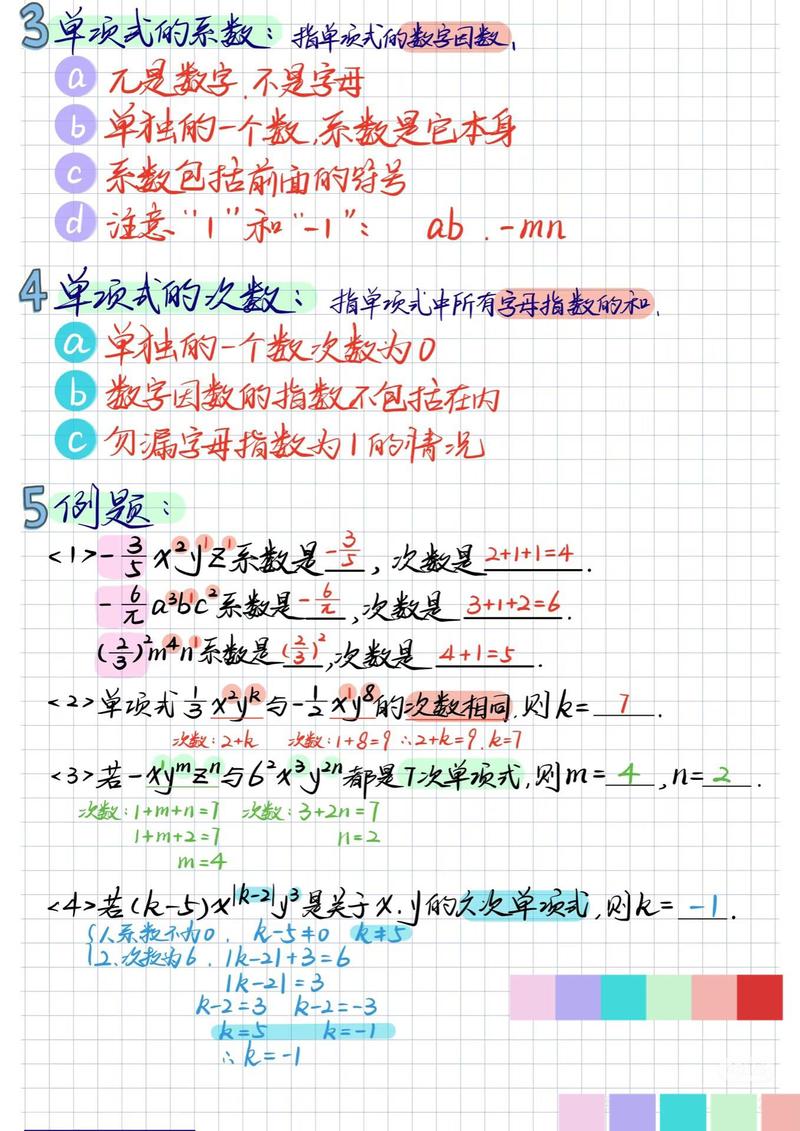 3 单项式的系数：指单项式的数字因数.
a π是数字.不是字母
b 单独的一个数,系数是它本身
c 系数包括前面的符号
d 注意“1”和“-1”： ab . -mn
4 单项式的次数：指单项式中所有字母指数的和.
a 单独的一个数次数为0
b 数字因数的指数不包括在内
c 勿漏字母指数为1的情况
5 例题：
<1> -3/5 x²y¹z¹系数是 -3/5 , 次数是 2+1+1=4 .
-6/π a³b¹c²系数是 -6/π ,次数是 3+1+2=6 .
(2/3)²m⁴n¹系数是 (2/3)² ,次数是 4+1=5 .
<2>单项式 1/3 x²yᵏ与-1/2 x¹y⁸的次数相同.则k= 7 .
次数：2+k 次数：1+8=9 ∴2+k=9.k=7
<3>若-x¹yᵐzⁿ与6²x³y²ⁿ都是7次单项式,则m= 4 ,n= 2 .
次数：1+m+n=7 次数：3+2n=7
1+m+2=7 n=2
m=4
<4>若(k-5)x^|k-2|y³是关于x.y的六次单项式,则k= -1 .
{1.系数不为0. k-5≠0 k≠5
2.次数为6. |k-2|+3=6
|k-2|=3
k-2=3 k-2=-3
k=5 k=-1
∴k=-1